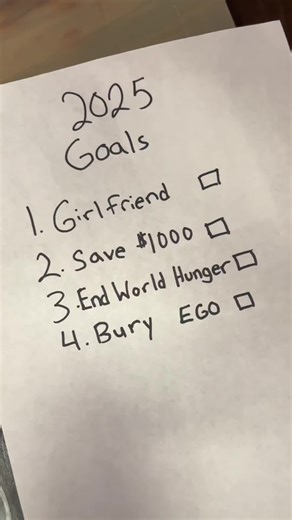 2025
Goals
1. Girlfriend
2. Save $1000
3. End World Hunger
4. Bury EGO